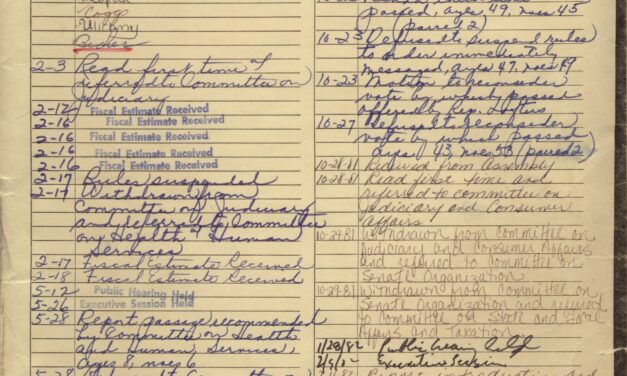 Ulichny
2-3 Read first time &
referred to Committee on
Judiciary
2-12 Fiscal Estimate Received
2-16 Fiscal Estimate Received
2-16 Fiscal Estimate Received
2-16 Fiscal Estimate Received
2-16 Fiscal Estimate Received
2-17 Rules suspended
Withdrawn from
Committee on Judiciary
and referred to Committee
on Health & Human
Services
2-17 Fiscal Estimate Received
2-18 Fiscal Estimate Received
5-12 Public Hearing Held
5-26 Executive Session Held
5-28 Report passage recommended
by Committee on Health
and Human Services,
ayes 8, noes 6
passed, ayes 49, noes 45
(paired 2)
10-23 suspend rules
to order immediately
messaged, ayes 47, noes 49
10-23 to reconsider
vote by which passed
offered by Rep. Loftus
10-27 Refused to reconsider
vote by which passed
ayes 43, noes 53 (paired 2)
10-28-81 Received from Assembly
10-28-81 Read first time and
referred to committee on
Judiciary and Consumer
Affairs
10-29-81 Withdrawn from Committee on
Judiciary and Consumer Affairs
and referred to Committee on
Senate Organization
10-29-81 Withdrawn from Committee on
Senate Organization and referred
to Committee on State and Local
Affairs and Taxation
1/28/82 Public Hearing Held
Executive Session